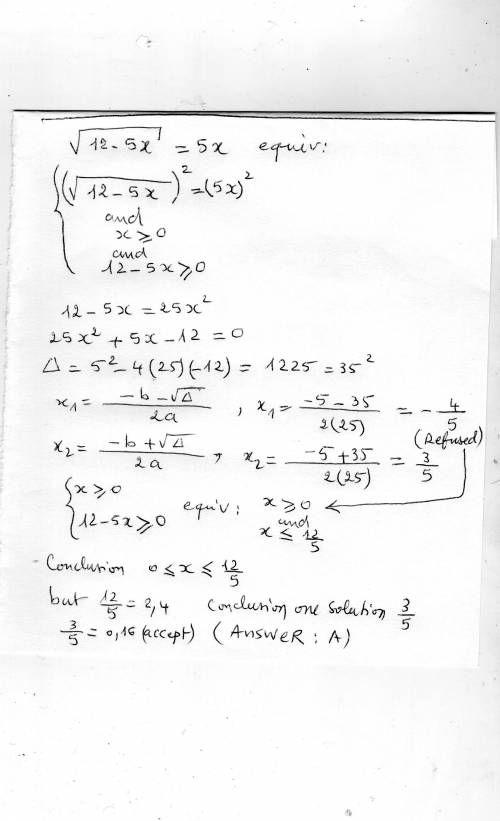 √12-5x = 5x equiv:
{(√12-5x)² = (5x)²
and
x ≥ 0
and
12-5x ≥ 0
12-5x = 25x²
25x² + 5x - 12 = 0
Δ = 5² - 4(25)(-12) = 1225 = 35²
x₁ = (-b-√Δ)/2a , x₁ = (-5-35)/2(25) = -4/5
(Refused)
x₂ = (-b+√Δ)/2a , x₂ = (-5+35)/2(25) = 3/5
{x ≥ 0
12-5x ≥ 0 equiv: x ≥ 0
and
x ≤ 12/5
- Conclusion 0 ≤ x ≤ 12/5
but 12/5 = 2,4 Conclusion one solution 3/5
3/5 = 0,16 (accept) (Answer : A)